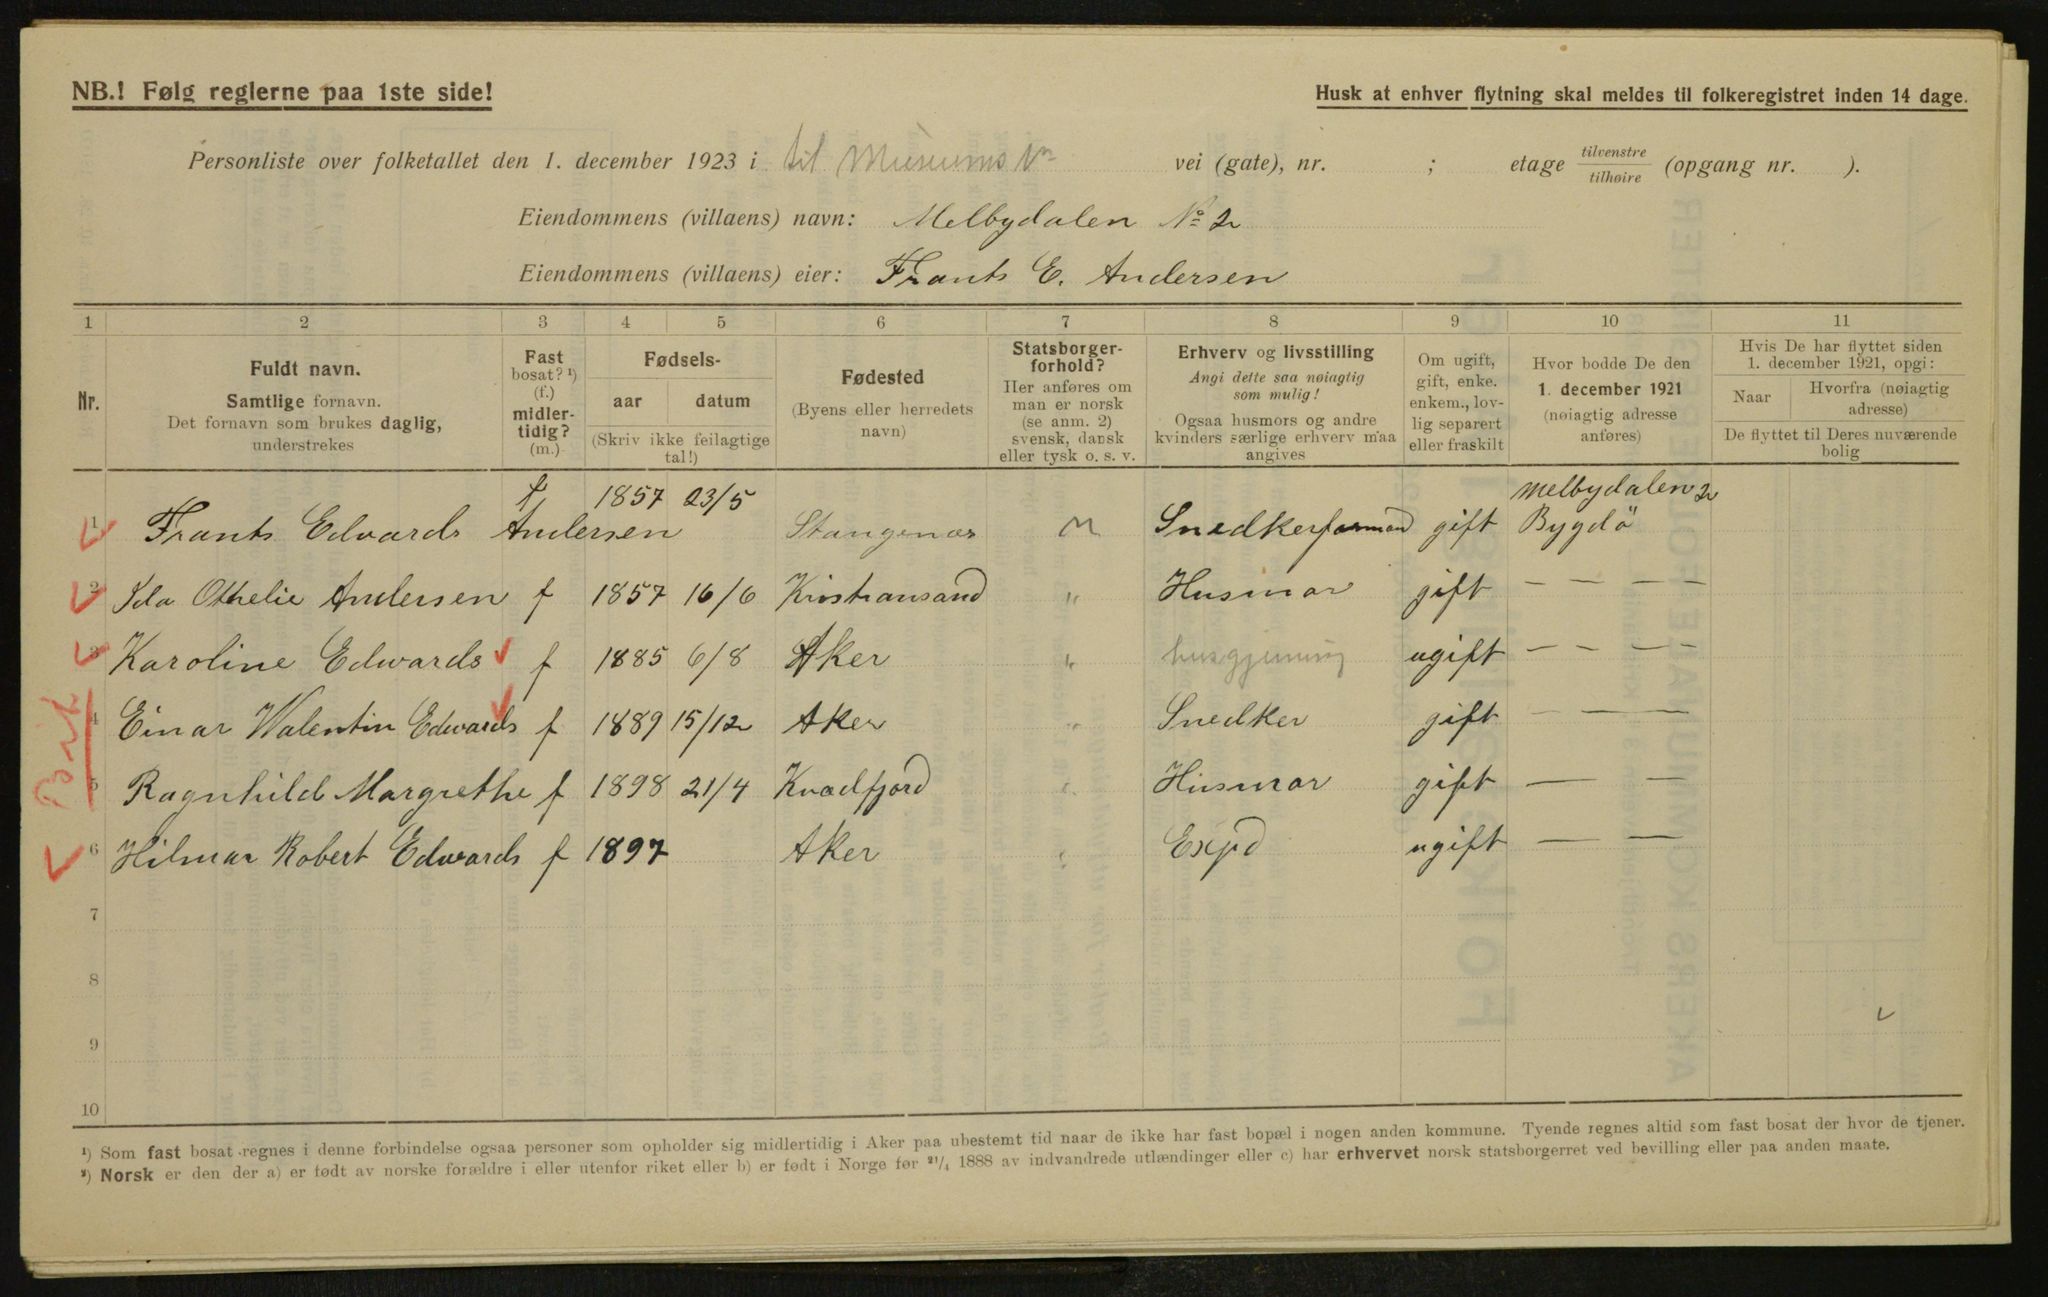 NB.! Følg reglerne paa 1ste side!
Husk at enhver flytning skal meldes til folkeregistret inden 14 dage.
Personliste over folketallet den 1. december 1923 i til Museums vn vei (gate), nr. ; etage tilvenstre/tilhøire (opgang nr. ).
Eiendommens (villaens) navn: Melbydalen No 2
Eiendommens (villaens) eier: Frants E. Andersen
1 2 3 4 5 6 7 8 9 10 11
Nr.
Fuldt navn.
Samtlige fornavn.
Det fornavn som brukes daglig,
understrekes
Fast
bosat? ¹)
(f.)
midler-
tidig?
(m.)
Fødsels-
aar datum
(Skriv ikke feilagtige
tal!)
Fødested
(Byens eller herredets
navn)
Statsborger-
forhold?
Her anføres om
man er norsk
(se anm. 2)
svensk, dansk
eller tysk o. s. v.
Erhverv og livsstilling
Angi dette saa nøiagtig
som mulig!
Ogsaa husmors og andre
kvinders særlige erhverv maa
angives
Om ugift,
gift, enke.
enkem., lov-
lig separert
eller fraskilt
Hvor bodde De den
1. december 1921
(nøiagtig adresse
anføres)
Hvis De har flyttet siden
1. december 1921, opgi:
Naar
Hvorfra (nøiagtig
adresse)
De flyttet til Deres nuværende
bolig
f 1857 23/5 Melbydalen 2
1 Frants Edvards Andersen Stangenæs N Snedkerformand gift Bygdö
2 Ida Othelie Andersen f 1857 16/6 Kristiansand " Husmor gift — — — —
3 Karoline Edwards f 1885 6/8 Aker " husgjerning ugift — — — —
4 Einar Walentin Edwards f 1889 15/12 Aker " Snedker gift — — —
5 Ragnhild Margrethe f 1898 21/4 Kvædfjord " Husmor gift — —
6 Hilmar Robert Edwards f 1897 Aker " Expd ugift — —
7
8
9
10
¹) Som fast bosat regnes i denne forbindelse ogsaa personer som opholder sig midlertidig i Aker paa ubestemt tid naar de ikke har fast bopæl i nogen anden kommune. Tyende regnes altid som fast bosat der hvor de tjener.
²) Norsk er den der a) er født av norske forældre i eller utenfor riket eller b) er født i Norge før ²¹/₄ 1888 av indvandrede utlændinger eller c) har erhvervet norsk statsborgerret ved bevilling eller paa anden maate.